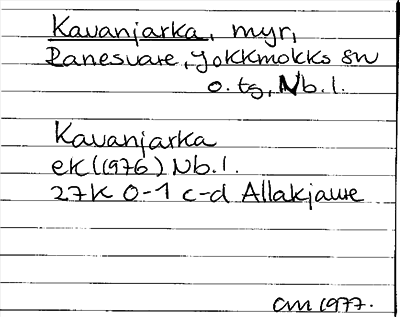 Kavanjarka, myr,
Ranesvare, Jokkmokks sn
o. tg, Nb. l.
Kavanjarka
ek (1976) Nb. l.
27K 0-1 c-d Allakjaure
CM 1977.